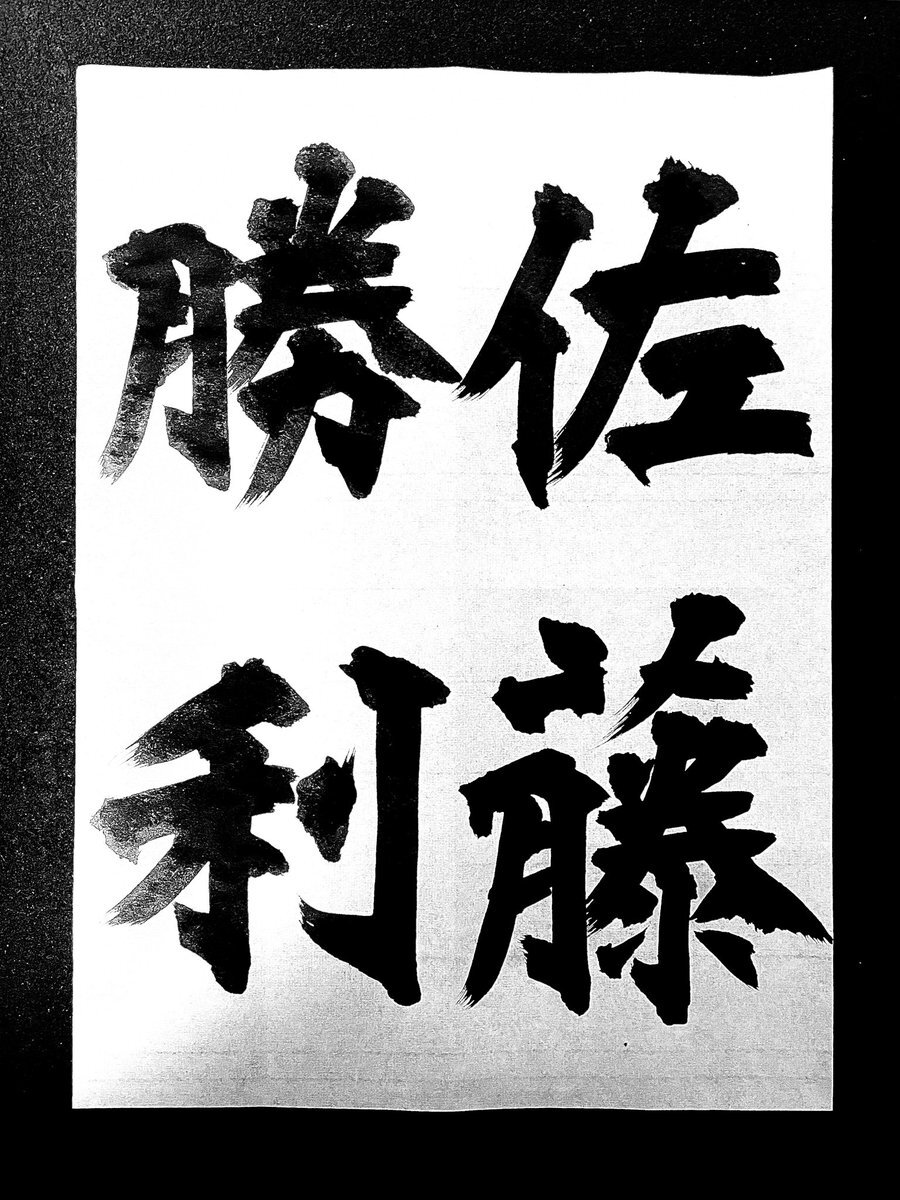 佐藤
勝利